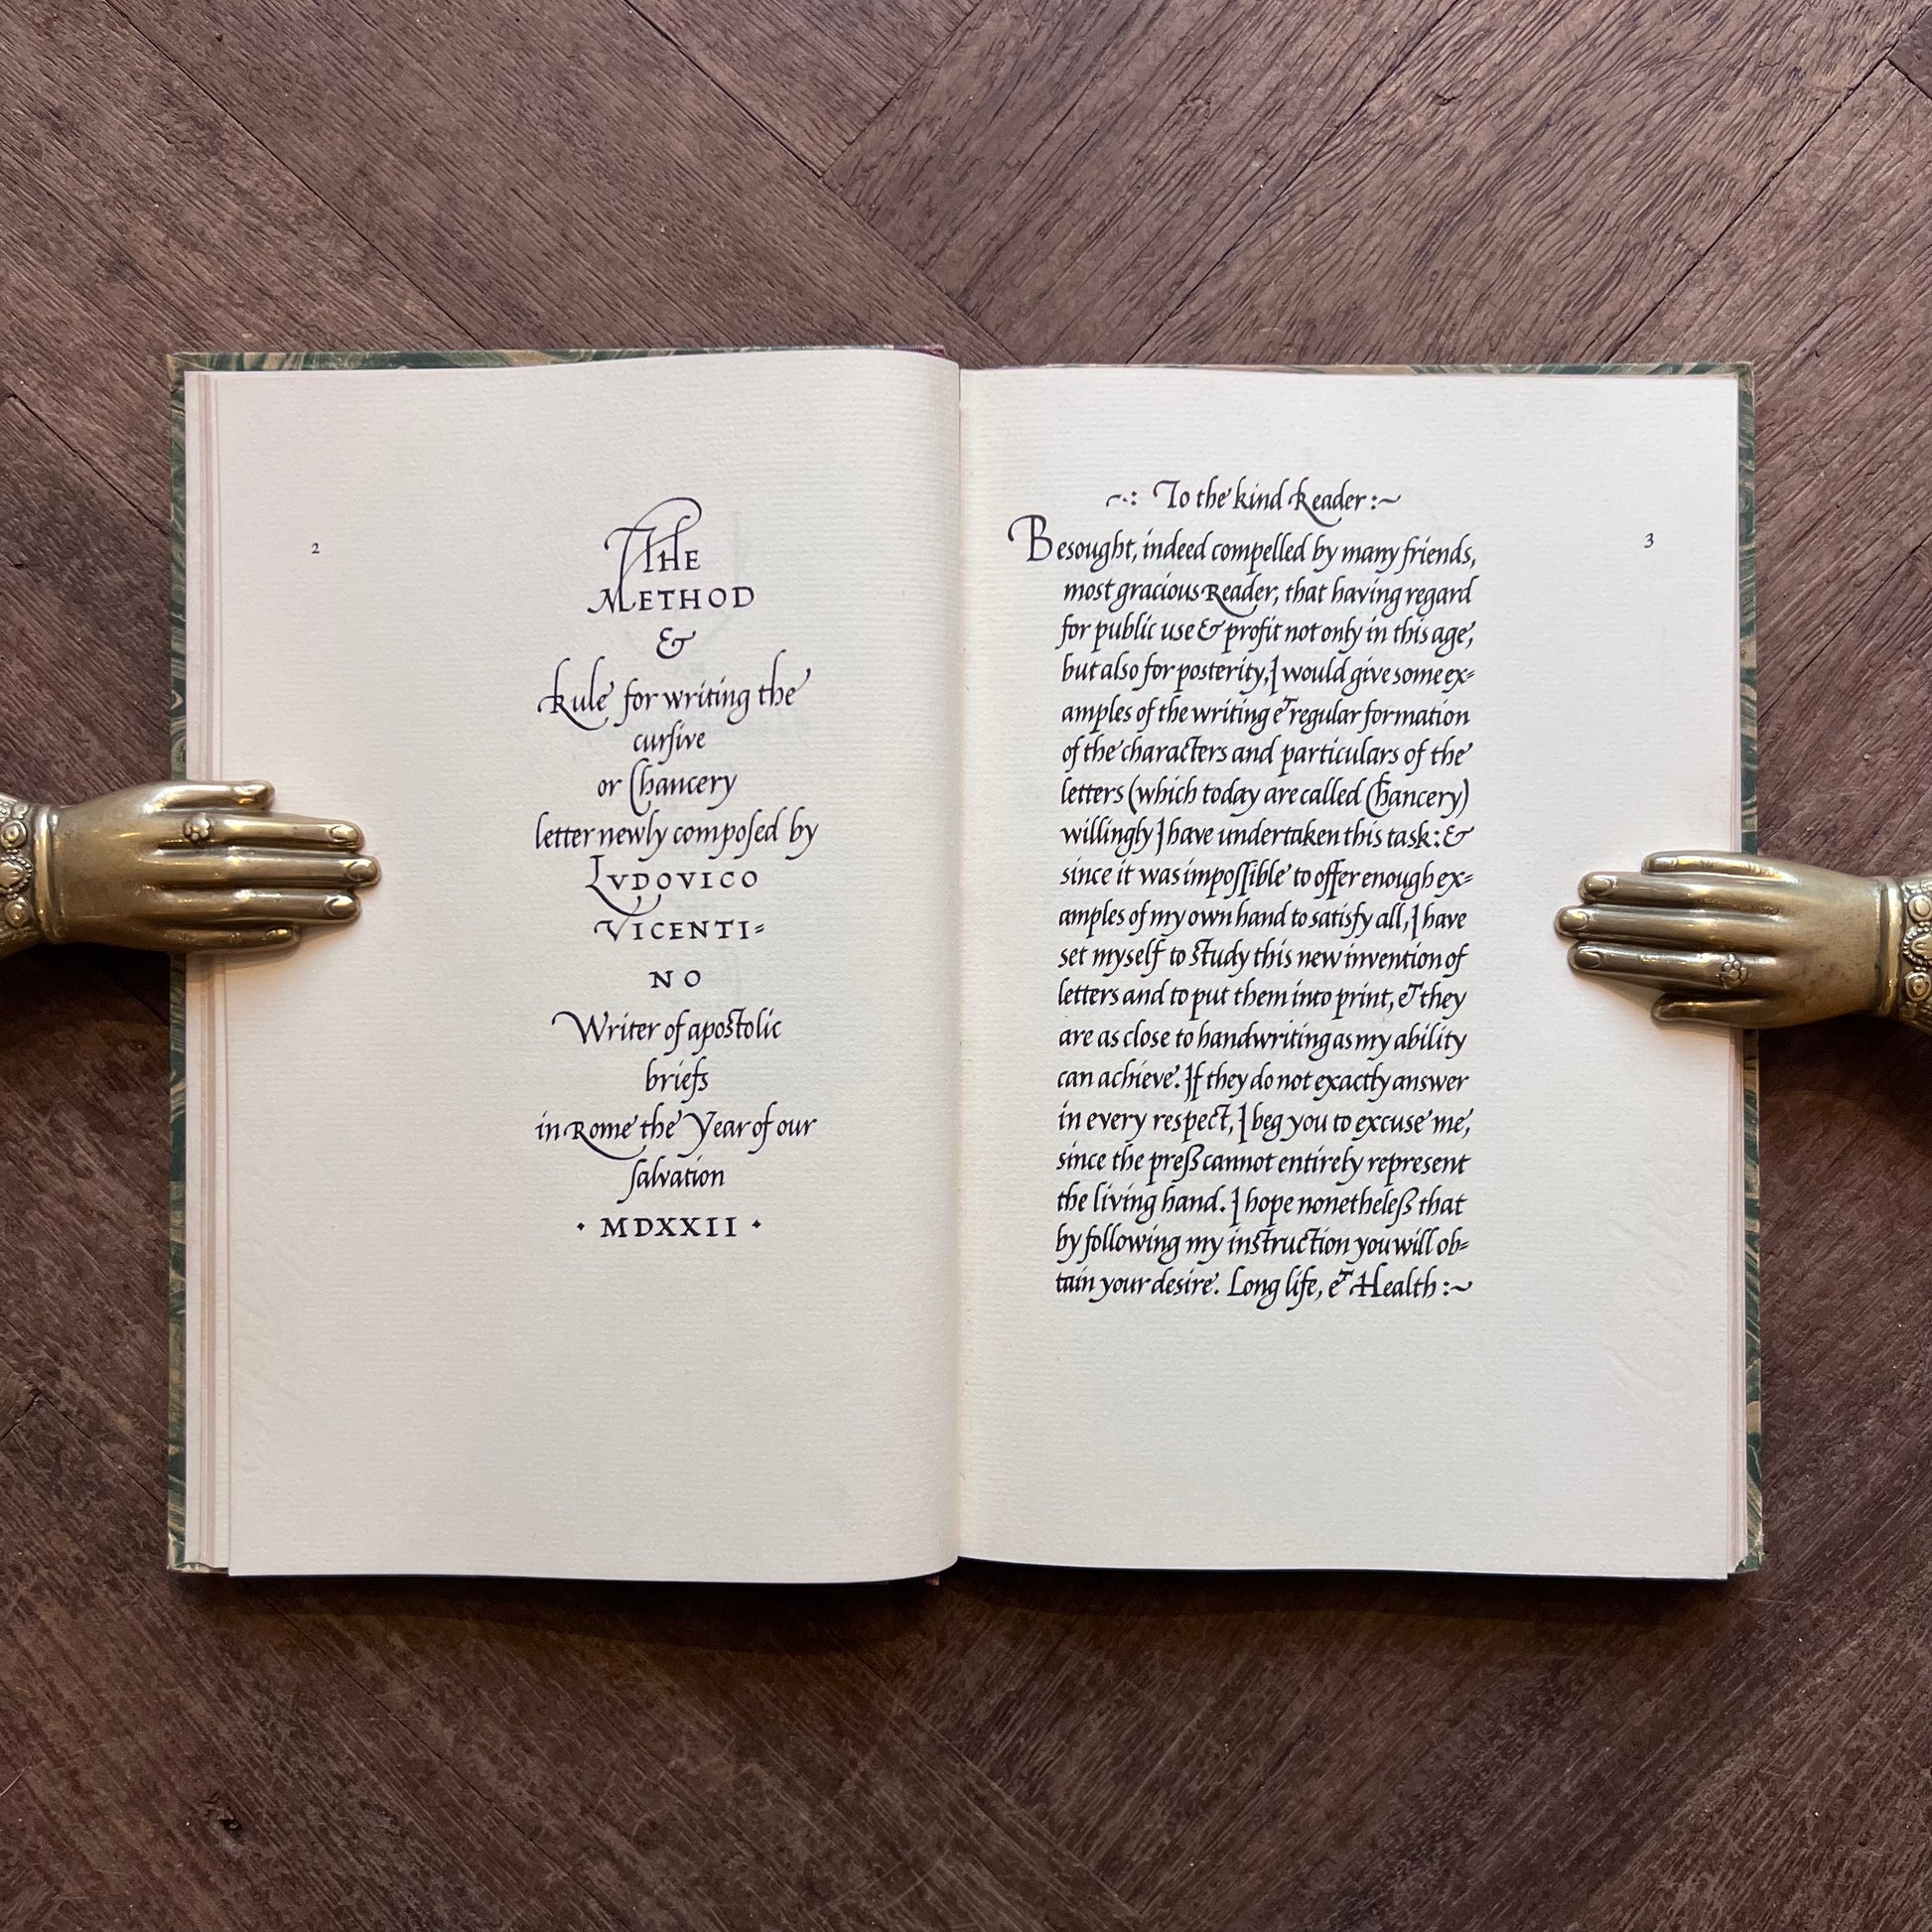 2
THE
METHOD
&
Rule for writing the
curſive
or Chancery
letter newly compoſed by
LVDOVICO
VICENTI=
NO
Writer of apostolic
briefs
in Rome the Year of our
ſalvation
· MDXXII ·
3
~·: To the kind Reader :~
Besought, indeed compelled by many friends,
most gracious Reader, that having regard
for public use & profit not only in this age,
but also for posterity, I would give some ex=
amples of the writing & regular formation
of the characters and particulars of the
letters (which today are called Chancery)
willingly I have undertaken this task: &
since it was impoſſible to offer enough ex=
amples of my own hand to satisfy all, I have
set myself to study this new invention of
letters and to put them into print, & they
are as close to handwriting as my ability
can achieve. If they do not exactly answer
in every respect, I beg you to excuse me,
since the preß cannot entirely represent
the living hand. I hope nonetheleß that
by following my instruction you will ob=
tain your desire. Long life, & Health :~